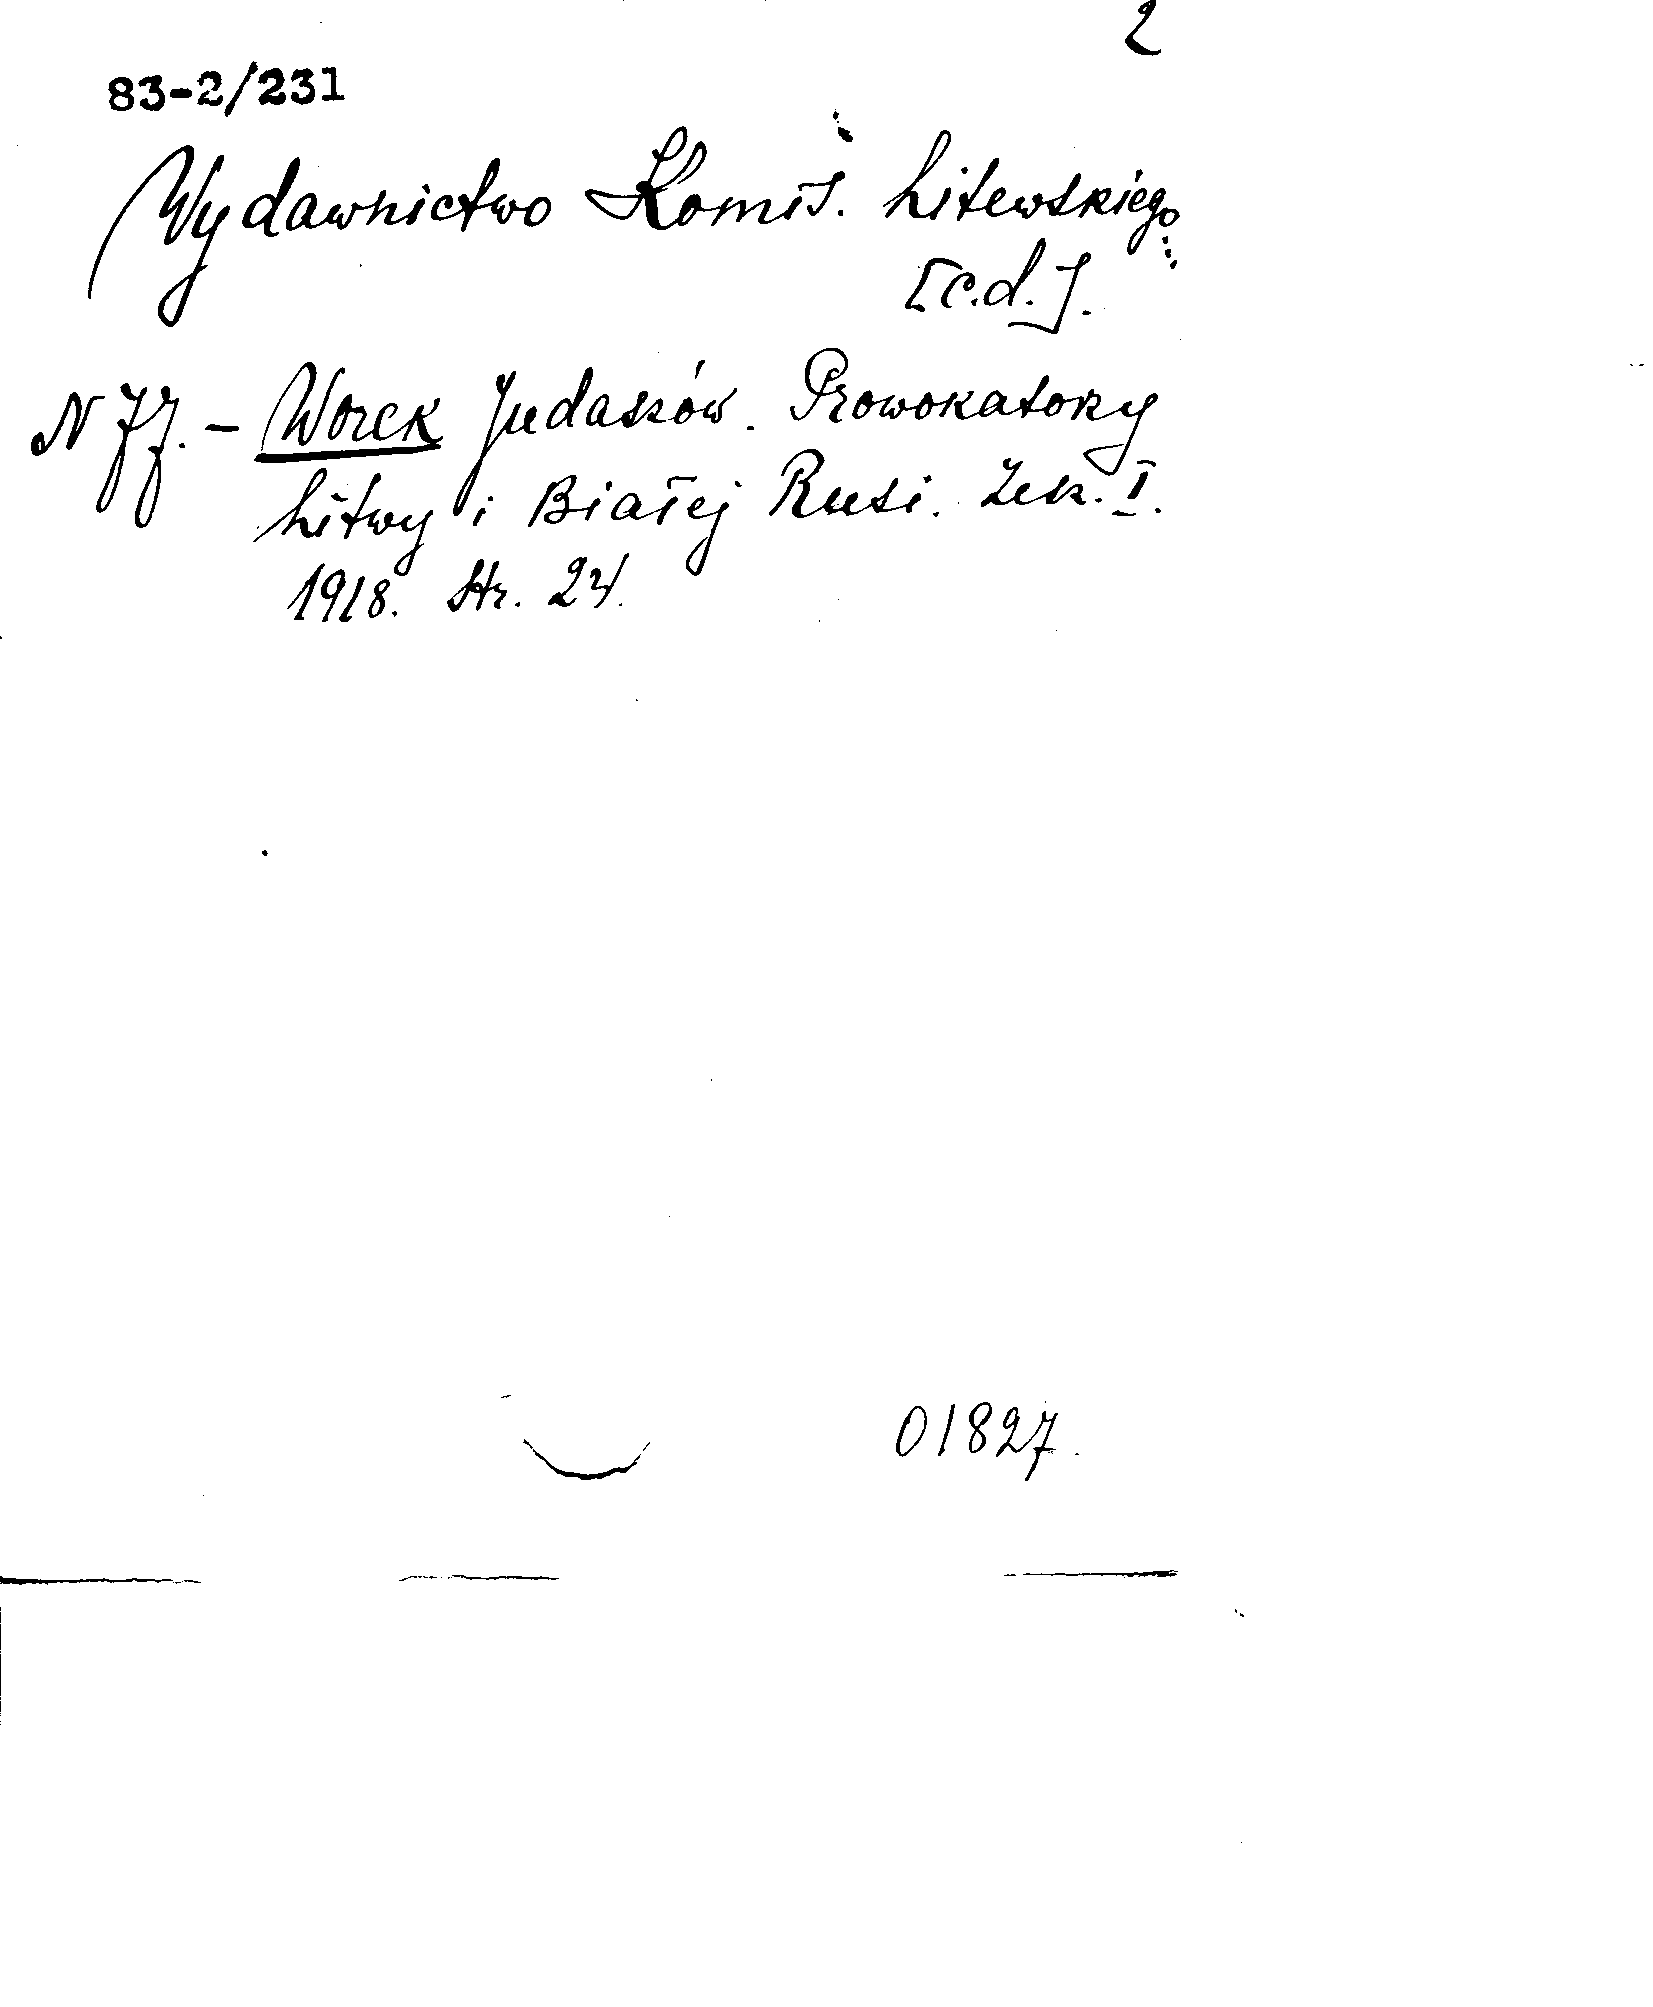 2
83-2/231
Wydawnictwo Komis. Litewskiego
[c.d.].
N 77. - Worek Judaszów. Prowokatory
Litwy i Białej Rusi. Zesz. I.
1918. Str. 24.
01827.